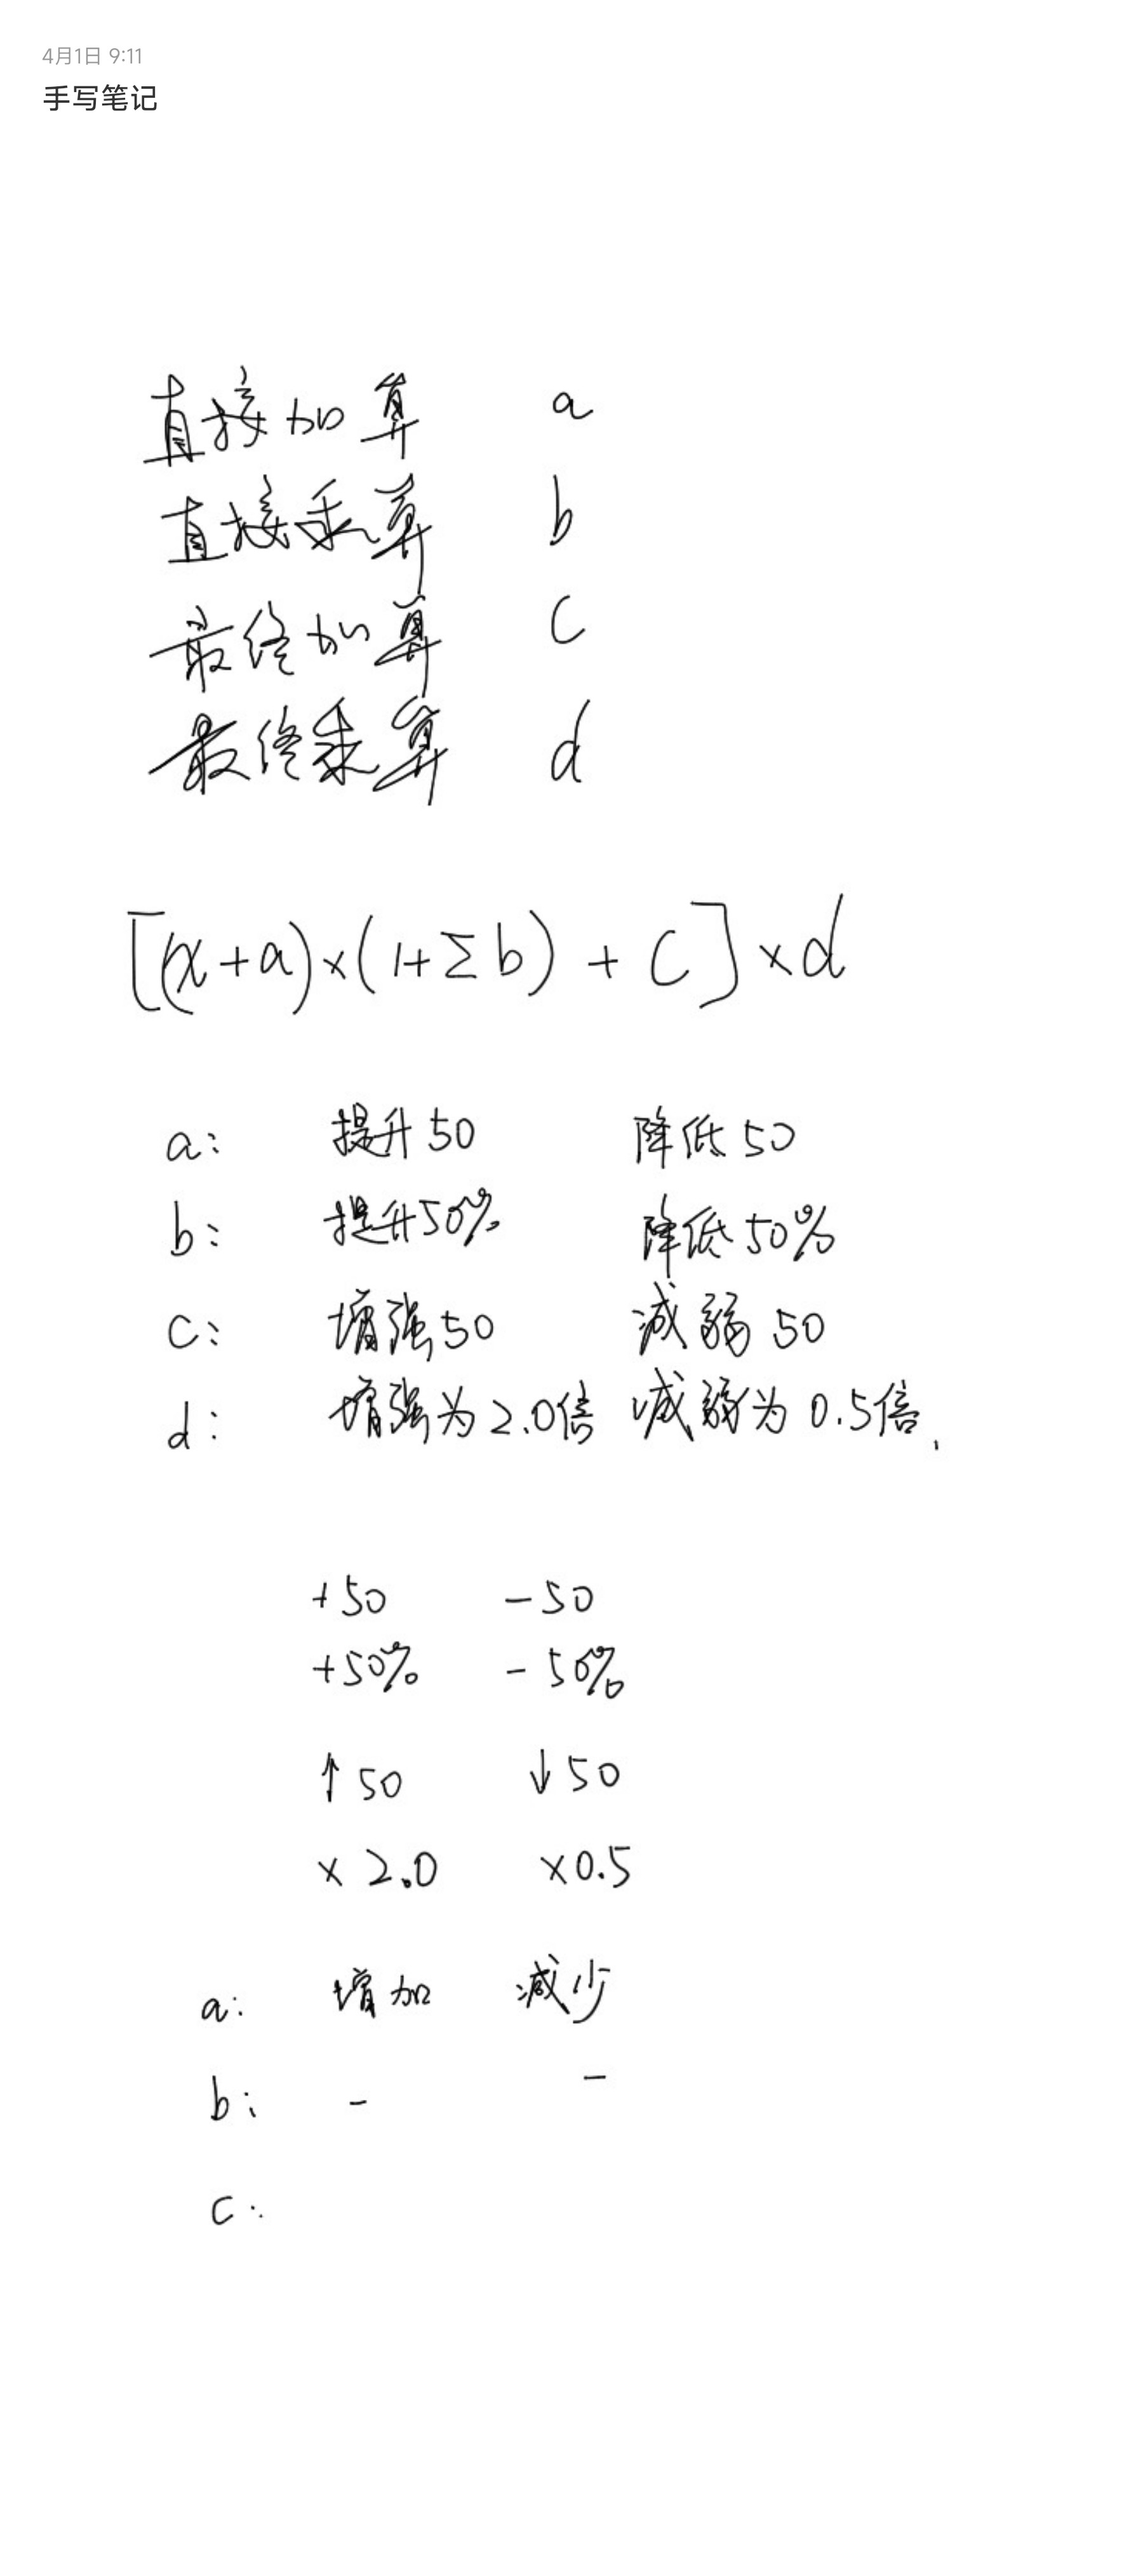 4月1日 9:11
手写笔记
直接加算 a
直接乘算 b
最终加算 c
最终乘算 d
[(x+a)×(1+Σb)+c]×d
a: 提升50 降低50
b: 提升50% 降低50%
c: 增强50 减弱50
d: 增强为2.0倍 减弱为0.5倍.
+50 -50
+50% -50%
↑50 ↓50
×2.0 ×0.5
a: 增加 减少
b: - -
c: